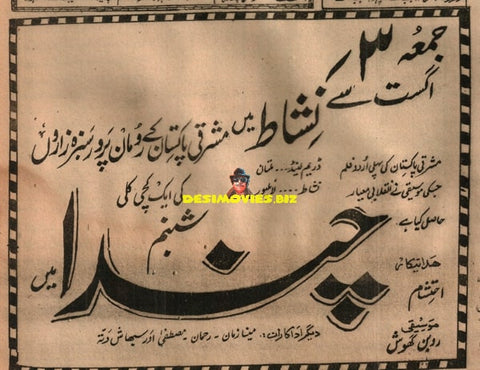 جمعہ ۳ اگست سے
نشاط میں مشرقی پاکستان کے رومان پرور سبزہ زاروں
کی ایک کچی کلی
شبنم
چندا میں
ڈریم لینڈ... ملتان
نشاط....
مشرقی پاکستان کی پہلی اردو فلم
جسکی موسیقی نے انقلابی معیار
حاصل کیا ہے
DESIMOVIES.BIZ
ھدایتکار
احتشام
موسیقی
روبن گھوش
دیگر اداکارات: مینا زمان - رحمان - مصطفیٰ اور سبھاش دتہ